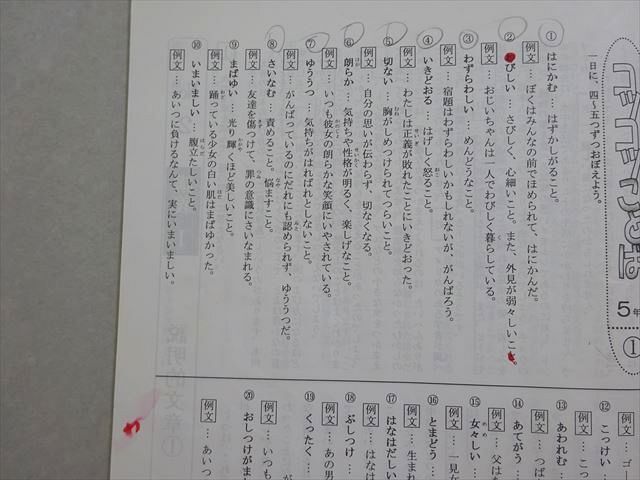 5年
①
一日に、四～五つずつおぼえよう。
① はにかむ … はずかしがること。
例文 … ぼくはみんなの前でほめられて、はにかんだ。
② わびしい … さびしく、心細いこと。また、外見が弱々しいこと。
例文 … おじいちゃんは一人でわびしく暮らしている。
③ わずらわしい … めんどうなこと。
例文 … 宿題はわずらわしいかもしれないが、がんばろう。
④ いきどおる … はげしく怒ること。
例文 … わたしは正義が敗れたことにいきどおった。
⑤ 切ない … 胸がしめつけられてつらいこと。
例文 … 自分の思いが伝わらず、切なくなる。
⑥ 朗らか … 気持ちや性格が明るく、楽しげなこと。
例文 … いつも彼女の朗らかな笑顔にいやされている。
⑦ ゆううつ … 気持ちがはればれとしないこと。
例文 … がんばっているのにだれにも認められず、ゆううつだ。
⑧ さいなむ … 責めること。悩ますこと。
例文 … 友達を傷つけて、罪の意識にさいなまれる。
⑨ まばゆい … 光り輝くほど美しいこと。
例文 … 踊っている少女の白い肌はまばゆかった。
⑩ いまいましい … 腹立たしいこと。
例文 … あいつに負けるなんて、実にいまいましい。
例文 … ゴー
⑫ こっけい …
例文 … こっ
⑬ あわれむ …
例文 … つば
⑭ あてがう …
例文 … 父は
⑮ 女々しい …
例文 … 一見
⑯ とまどう …
例文 … 生まれ
⑰ はなはだしい
例文 … はなは
⑱ ぶしつけ …
例文 … あの男
⑲ くったく …
例文 … いつも
⑳ おしつけがま
例文 … あいつ
説明的文章①